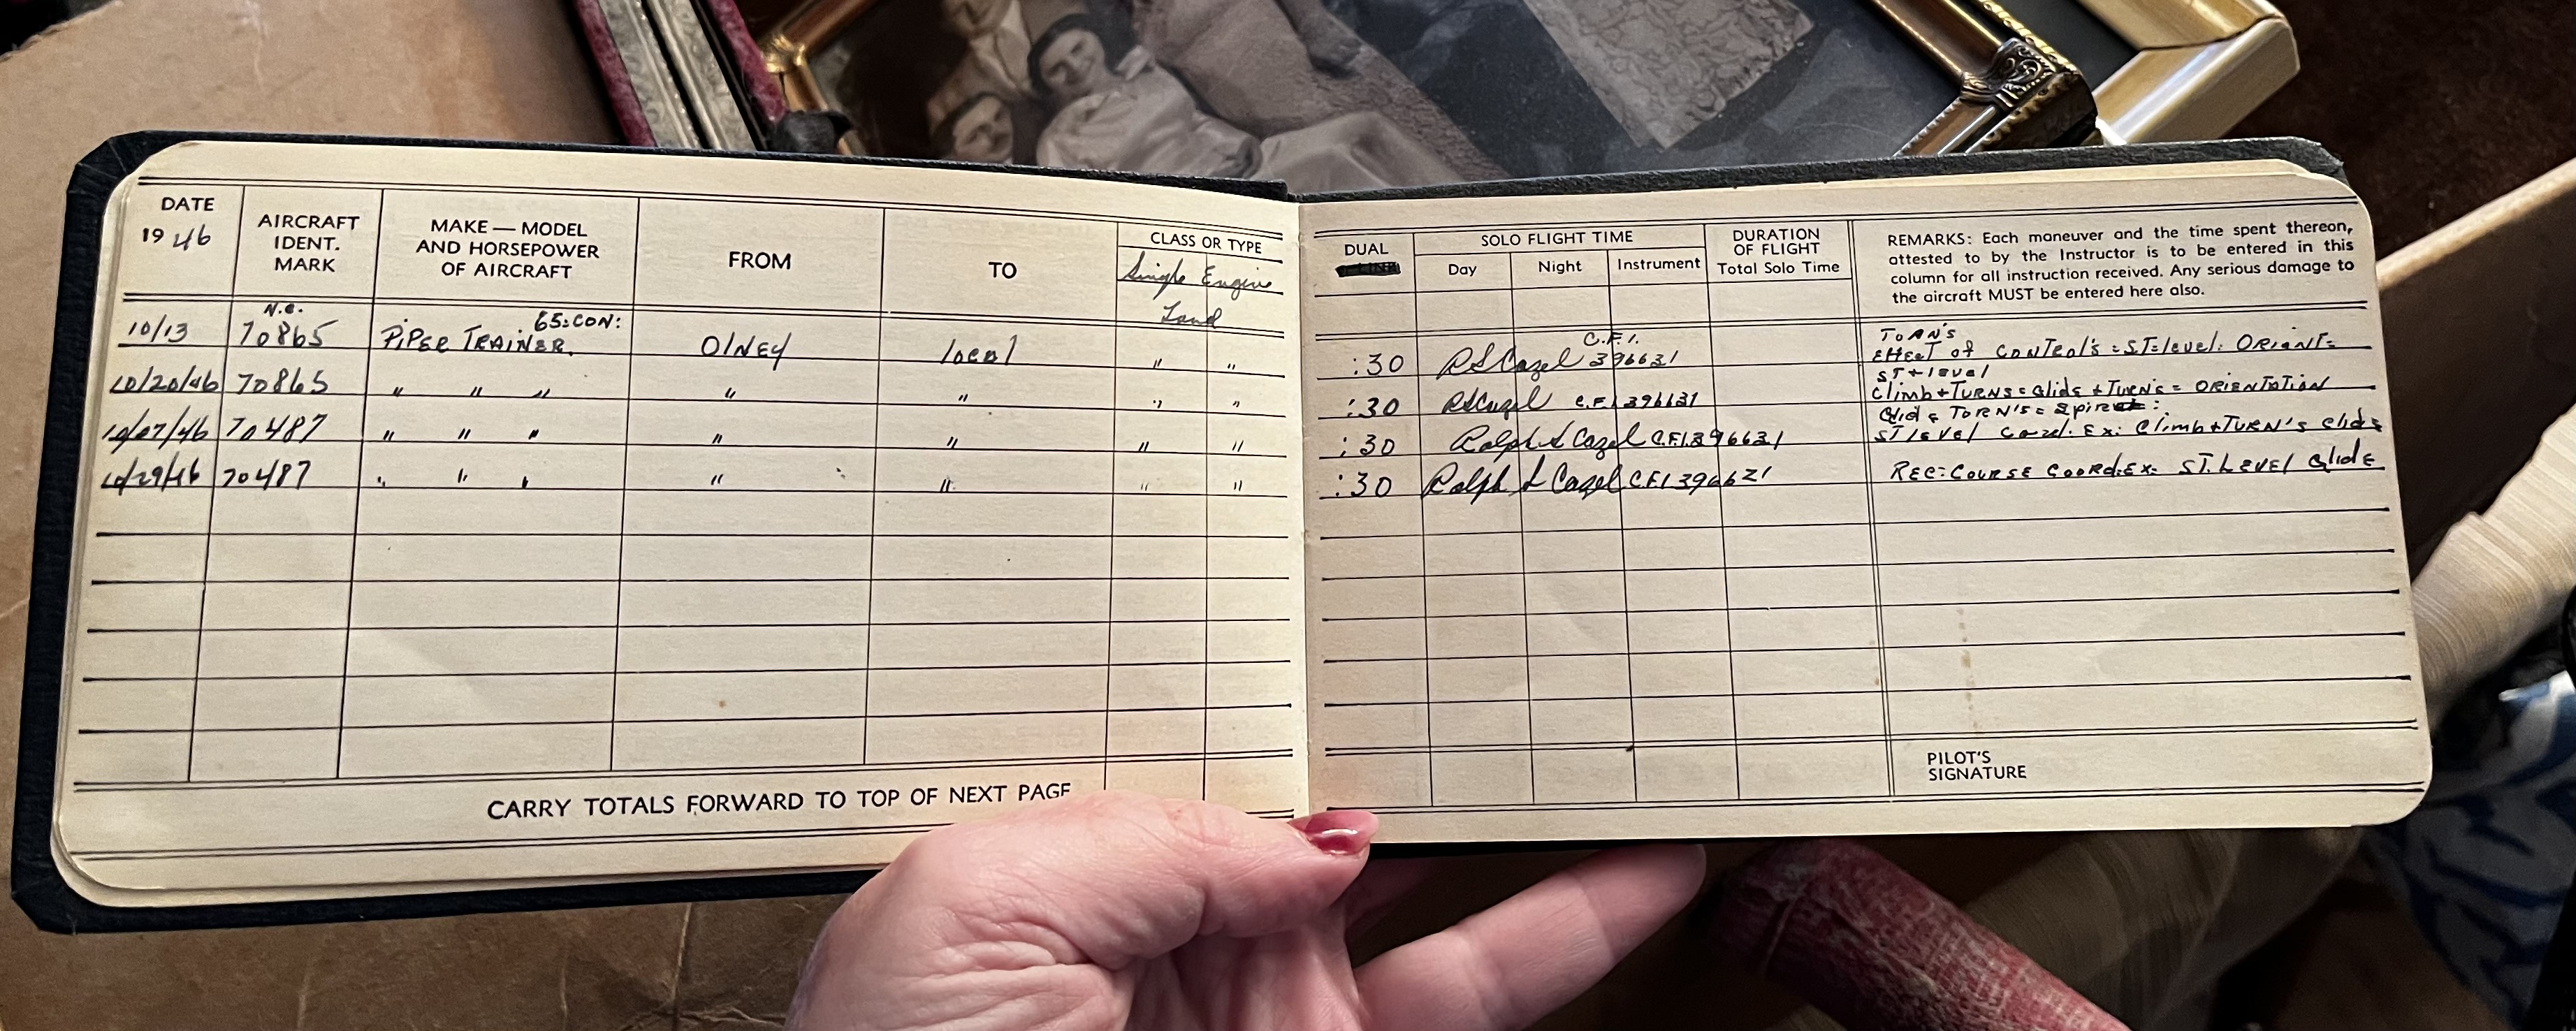 DATE
19 46
AIRCRAFT
IDENT.
MARK
MAKE — MODEL
AND HORSEPOWER
OF AIRCRAFT
FROM
TO
CLASS OR TYPE
Single Engine
Land
DUAL
SOLO FLIGHT TIME
Day
Night
Instrument
DURATION
OF FLIGHT
Total Solo Time
REMARKS: Each maneuver and the time spent thereon,
attested to by the Instructor is to be entered in this
column for all instruction received. Any serious damage to
the aircraft MUST be entered here also.
N.C. 65:CON: C.F.I. TORN'S
10/13 70865 PiPER TRAiNER. OlNEY local " " :30 RS Cazel 396631 Effect of CONTROl's = ST=level: ORiENT=
ST+level
10/20/46 70865 " " " " " " " :30 RS Cazel C.F.I 396631 Climb + TURNS = Glide + TURN'S = ORiENTATION
Glide TORN'S =
70487 " " " " " " " :30 Ralph S Cazel C.F.I. 396631 ST level Ex: Climb + TURN'S Glide
10/29/46 70487 " " " " " " " :30 Ralph S Cazel C.F.I 396631 REC: COURSE COORD: EX= ST. LEVEL GlidE
CARRY TOTALS FORWARD TO TOP OF NEXT PAGE
PILOT'S
SIGNATURE